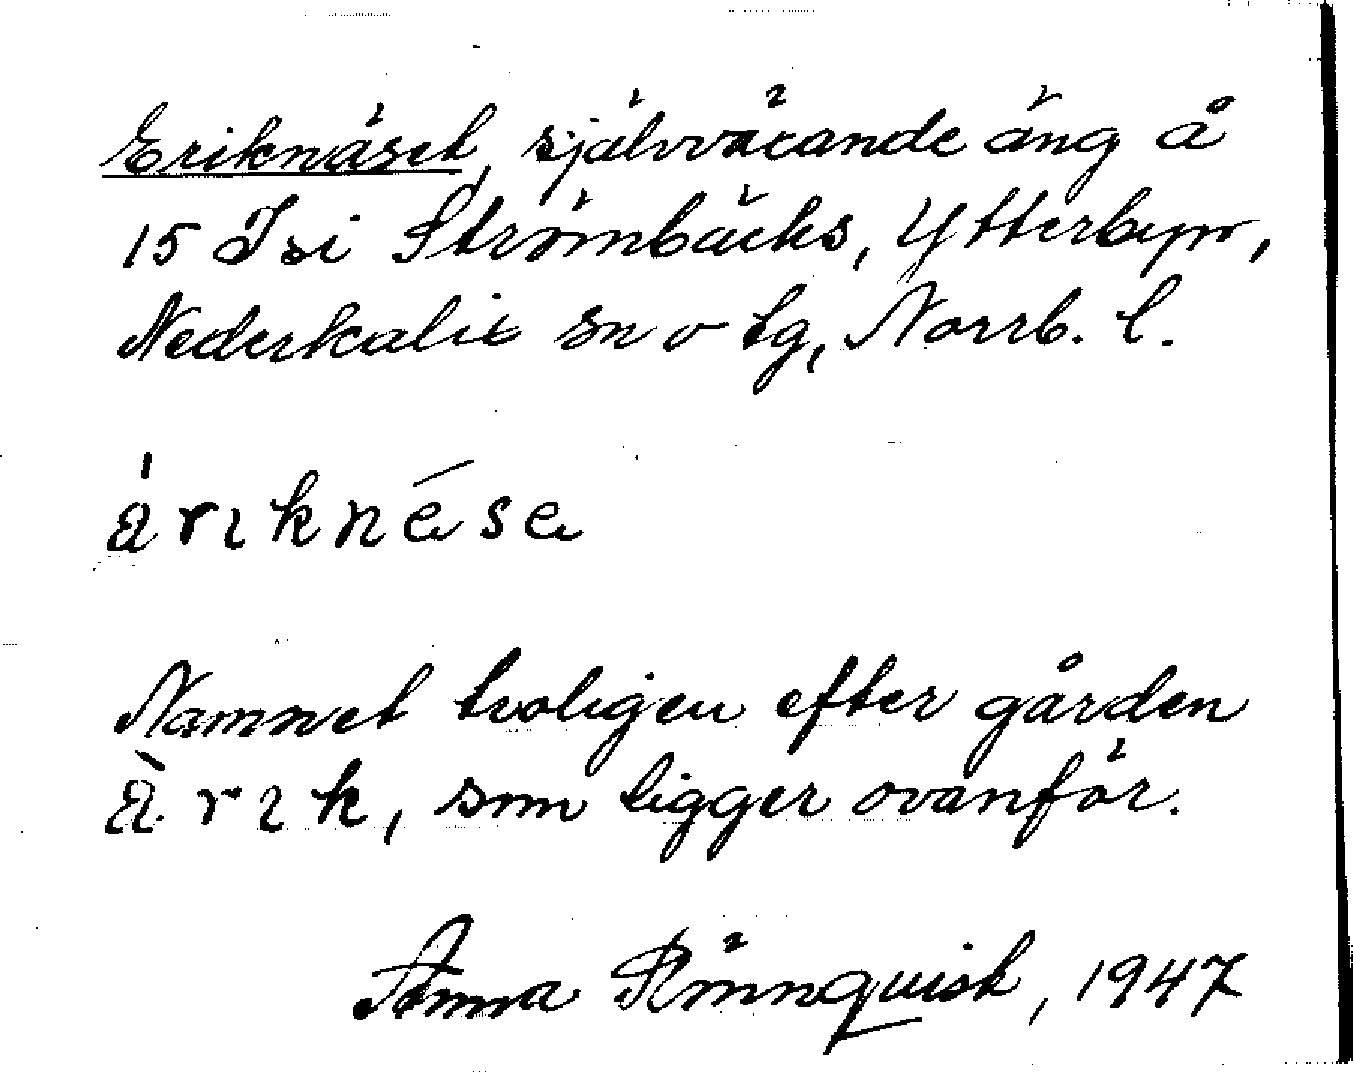 Eriknäset, självväxande äng å
15 Isi Strömbäcks, Ytterbyn,
Nederkalix sn o tg, Norrb. l.
àrıknése
Namnet troligen efter gården
Àrık, som ligger ovanför.
Anna Rönnquist, 1947